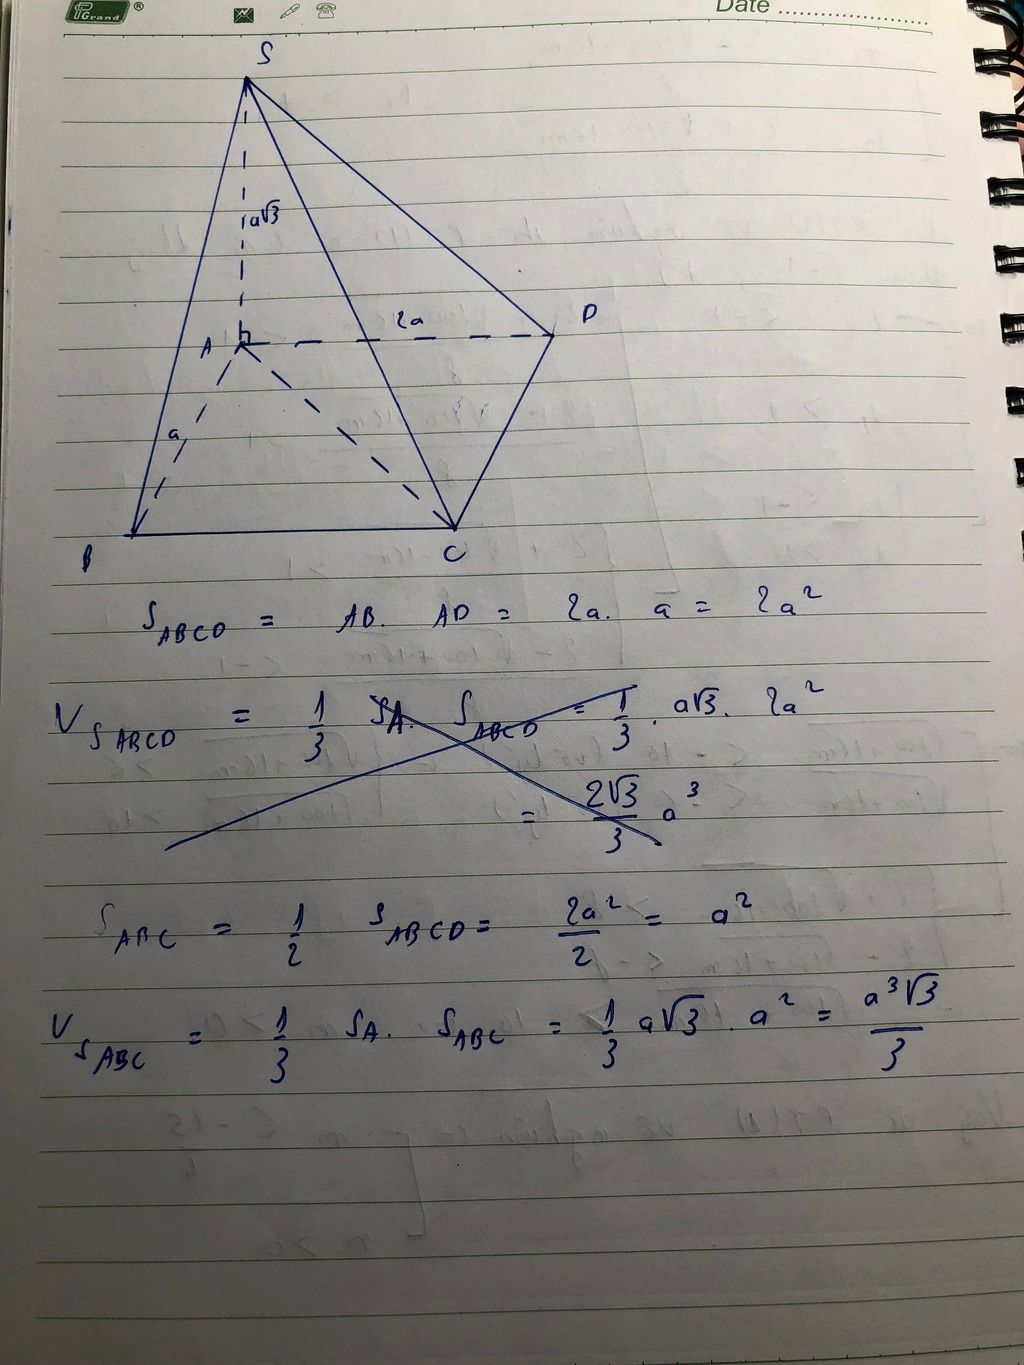 PGrand ®
Date
S
a√3
A
2a
D
a
B
C
S ABCD = AB. AD = 2a. a = 2a²
V S ABCD = 1/3 SA. S ABCD = 1/3 . a√3. 2a²
= 2√3/3 a³
S ABC = 1/2 S ABCD = 2a²/2 = a²
V S ABC = 1/3 SA. S ABC = 1/3 a√3 . a² = a³√3/3